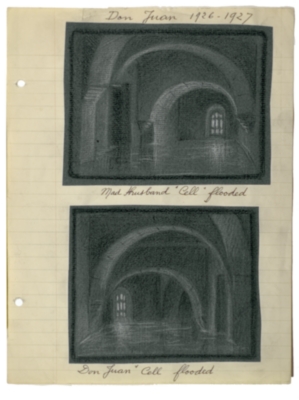 Don Juan 1926-1927
Mad Husband "Cell" flooded
Don Juan" Cell flooded